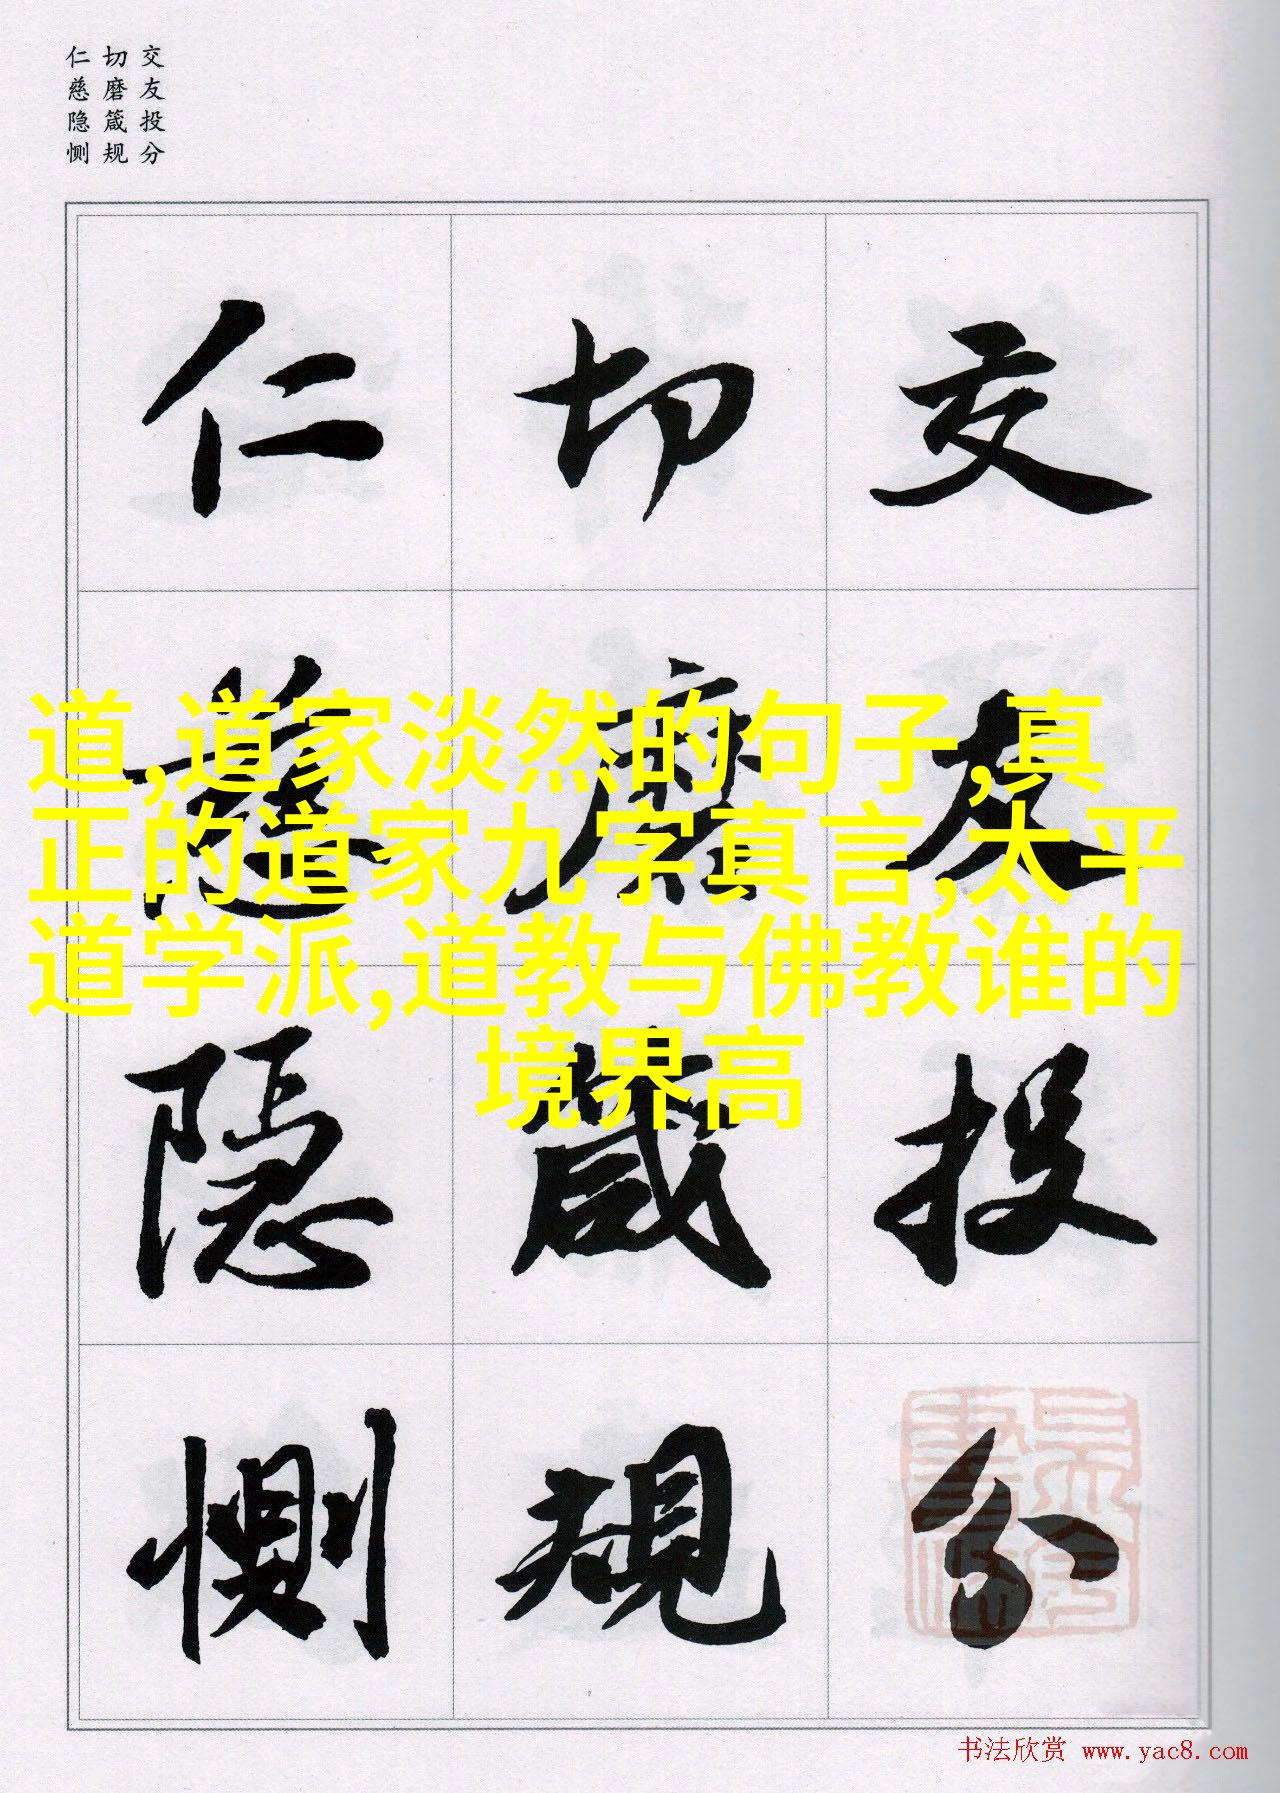 交友投分
切磨箴规
仁慈隐恻
交友投分
切磨箴規
仁慈隐恻
道,道家淡然的句子,真
正的道家九字真言,太平
道学派,道教与佛教谁的
境界高
书法欣赏 www.yac8.com